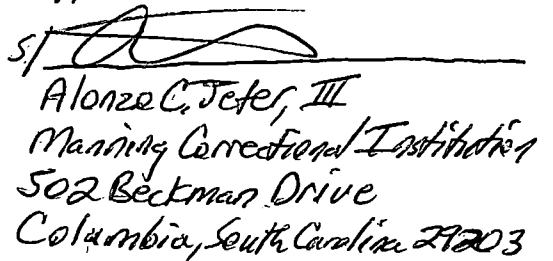 s/
Alonzo C. Jeter, III
Manning Correctional Institution
502 Beckman Drive
Columbia, South Carolina 29203